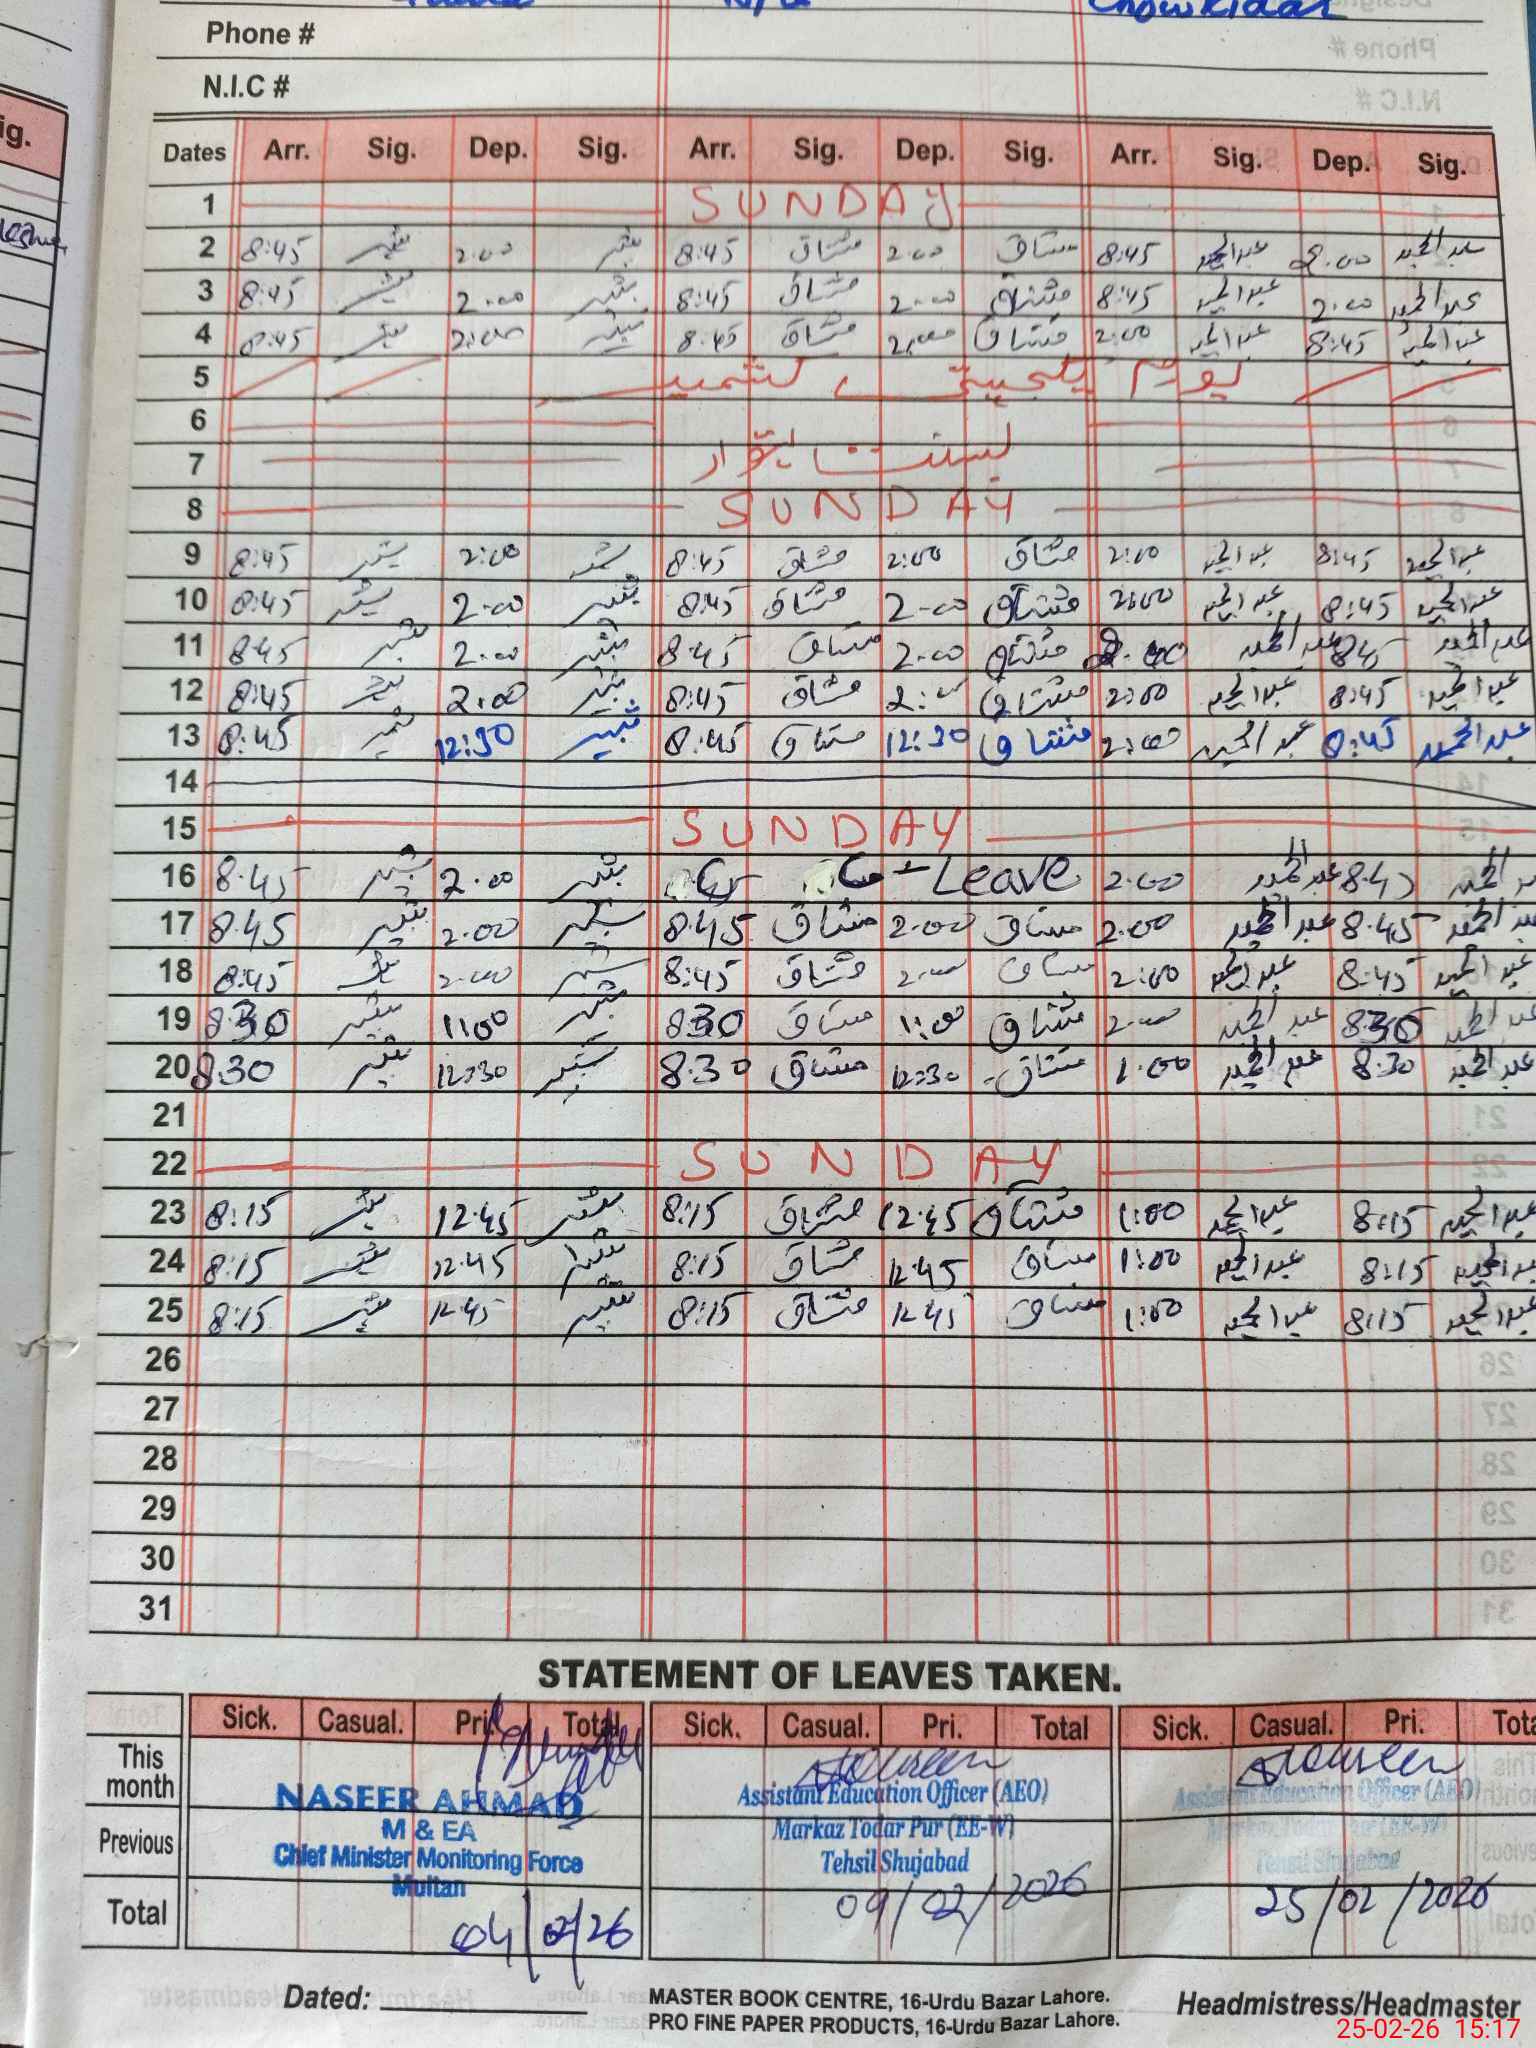 Chowkidar
Phone #
N.I.C #
Dates Arr. Sig. Dep. Sig. Arr. Sig. Dep. Sig. Arr. Sig. Dep. Sig.
1 SUNDAY
2 8:45 بشیر 2:00 بشیر 8:45 مشتاق 2:00 مشتاق 8:45 عبدالحمید 2:00 عبدالحمید
3 8:45 بشیر 2:00 بشیر 8:45 مشتاق 2:00 مشتاق 8:45 عبدالحمید 2:00 عبدالحمید
4 8:45 بشیر 2:00 بشیر 8:45 مشتاق 2:00 مشتاق 2:00 عبدالحمید 8:45 عبدالحمید
5 یوم یکجہتی کشمیر
6
7 بسنت
8 SUNDAY
9 8:45 بشیر 2:00 بشیر 8:45 مشتاق 2:00 مشتاق 2:00 عبدالحمید 8:45 عبدالحمید
10 8:45 بشیر 2:00 بشیر 8:45 مشتاق 2:00 مشتاق 2:00 عبدالحمید 8:45 عبدالحمید
11 8:45 بشیر 2:00 بشیر 8:45 مشتاق 2:00 مشتاق 2:00 عبدالحمید 8:45 عبدالحمید
12 8:45 بشیر 2:00 بشیر 8:45 مشتاق 2:00 مشتاق 2:00 عبدالحمید 8:45 عبدالحمید
13 8:45 بشیر 12:30 بشیر 8:45 مشتاق 12:30 مشتاق 2:00 عبدالحمید 8:45 عبدالحمید
14
15 SUNDAY
16 8:45 بشیر 2:00 بشیر C - Leave 2:00 عبدالحمید 8:45 عبدالحمید
17 8:45 بشیر 2:00 بشیر 8:45 مشتاق 2:00 مشتاق 2:00 عبدالحمید 8:45 عبدالحمید
18 8:45 بشیر 2:00 بشیر 8:45 مشتاق 2:00 مشتاق 2:00 عبدالحمید 8:45 عبدالحمید
19 8:30 بشیر 11:00 بشیر 8:30 مشتاق 11:00 مشتاق 2:00 عبدالحمید 8:30 عبدالحمید
20 8:30 بشیر 12:30 بشیر 8:30 مشتاق 12:30 مشتاق 1:00 عبدالحمید 8:30 عبدالحمید
21
22 SUNDAY
23 8:15 بشیر 12:45 بشیر 8:15 مشتاق 12:45 مشتاق 1:00 عبدالحمید 8:15 عبدالحمید
24 8:15 بشیر 12:45 بشیر 8:15 مشتاق 12:45 مشتاق 1:00 عبدالحمید 8:15 عبدالحمید
25 8:15 بشیر 12:45 بشیر 8:15 مشتاق 12:45 مشتاق 1:00 عبدالحمید 8:15 عبدالحمید
26
27
28
29
30
31
STATEMENT OF LEAVES TAKEN.
Sick. Casual. Pri. Total Sick. Casual. Pri. Total Sick. Casual. Pri.
This month
Previous
Total
NASEER AHMAD
M & EA
Chief Minister Monitoring Force
Multan
04/02/26
Assistant Education Officer (AEO)
Markaz Todar Pur (EE-W)
Tehsil Shujabad
09/02/2026
Assistant Education Officer (AEO)
Markaz Todar Pur (EE-W)
Tehsil Shujabad
25/02/2026
Dated:
MASTER BOOK CENTRE, 16-Urdu Bazar Lahore.
PRO FINE PAPER PRODUCTS, 16-Urdu Bazar Lahore.
Headmistress/Headmaster
25-02-26 15:17